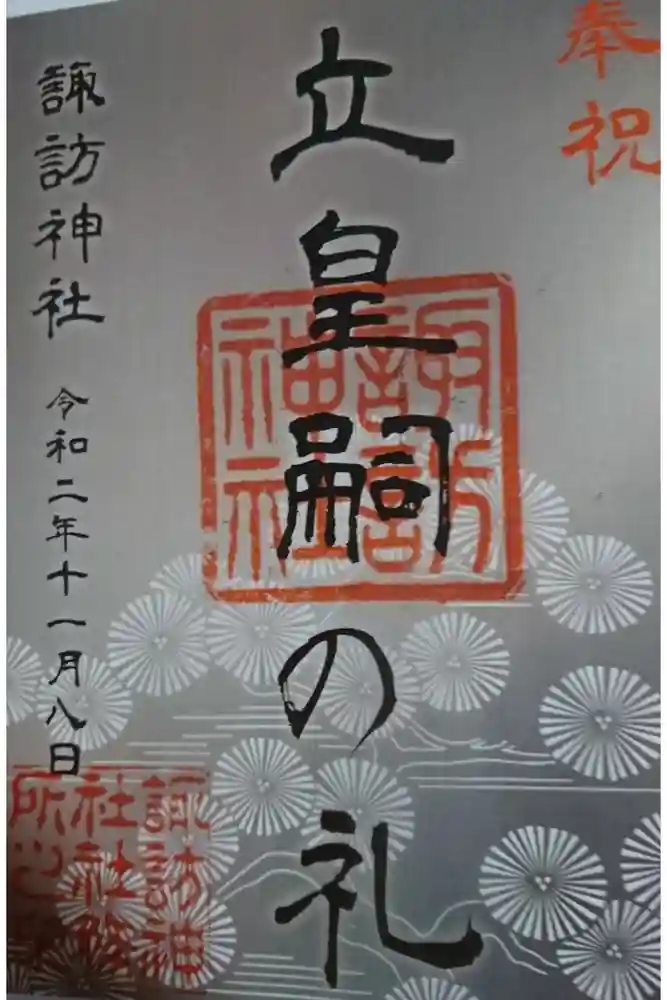 奉祝
立皇嗣の礼
諏訪神社
諏訪神社 令和二年十一月八日
諏訪神
社社務
所之印